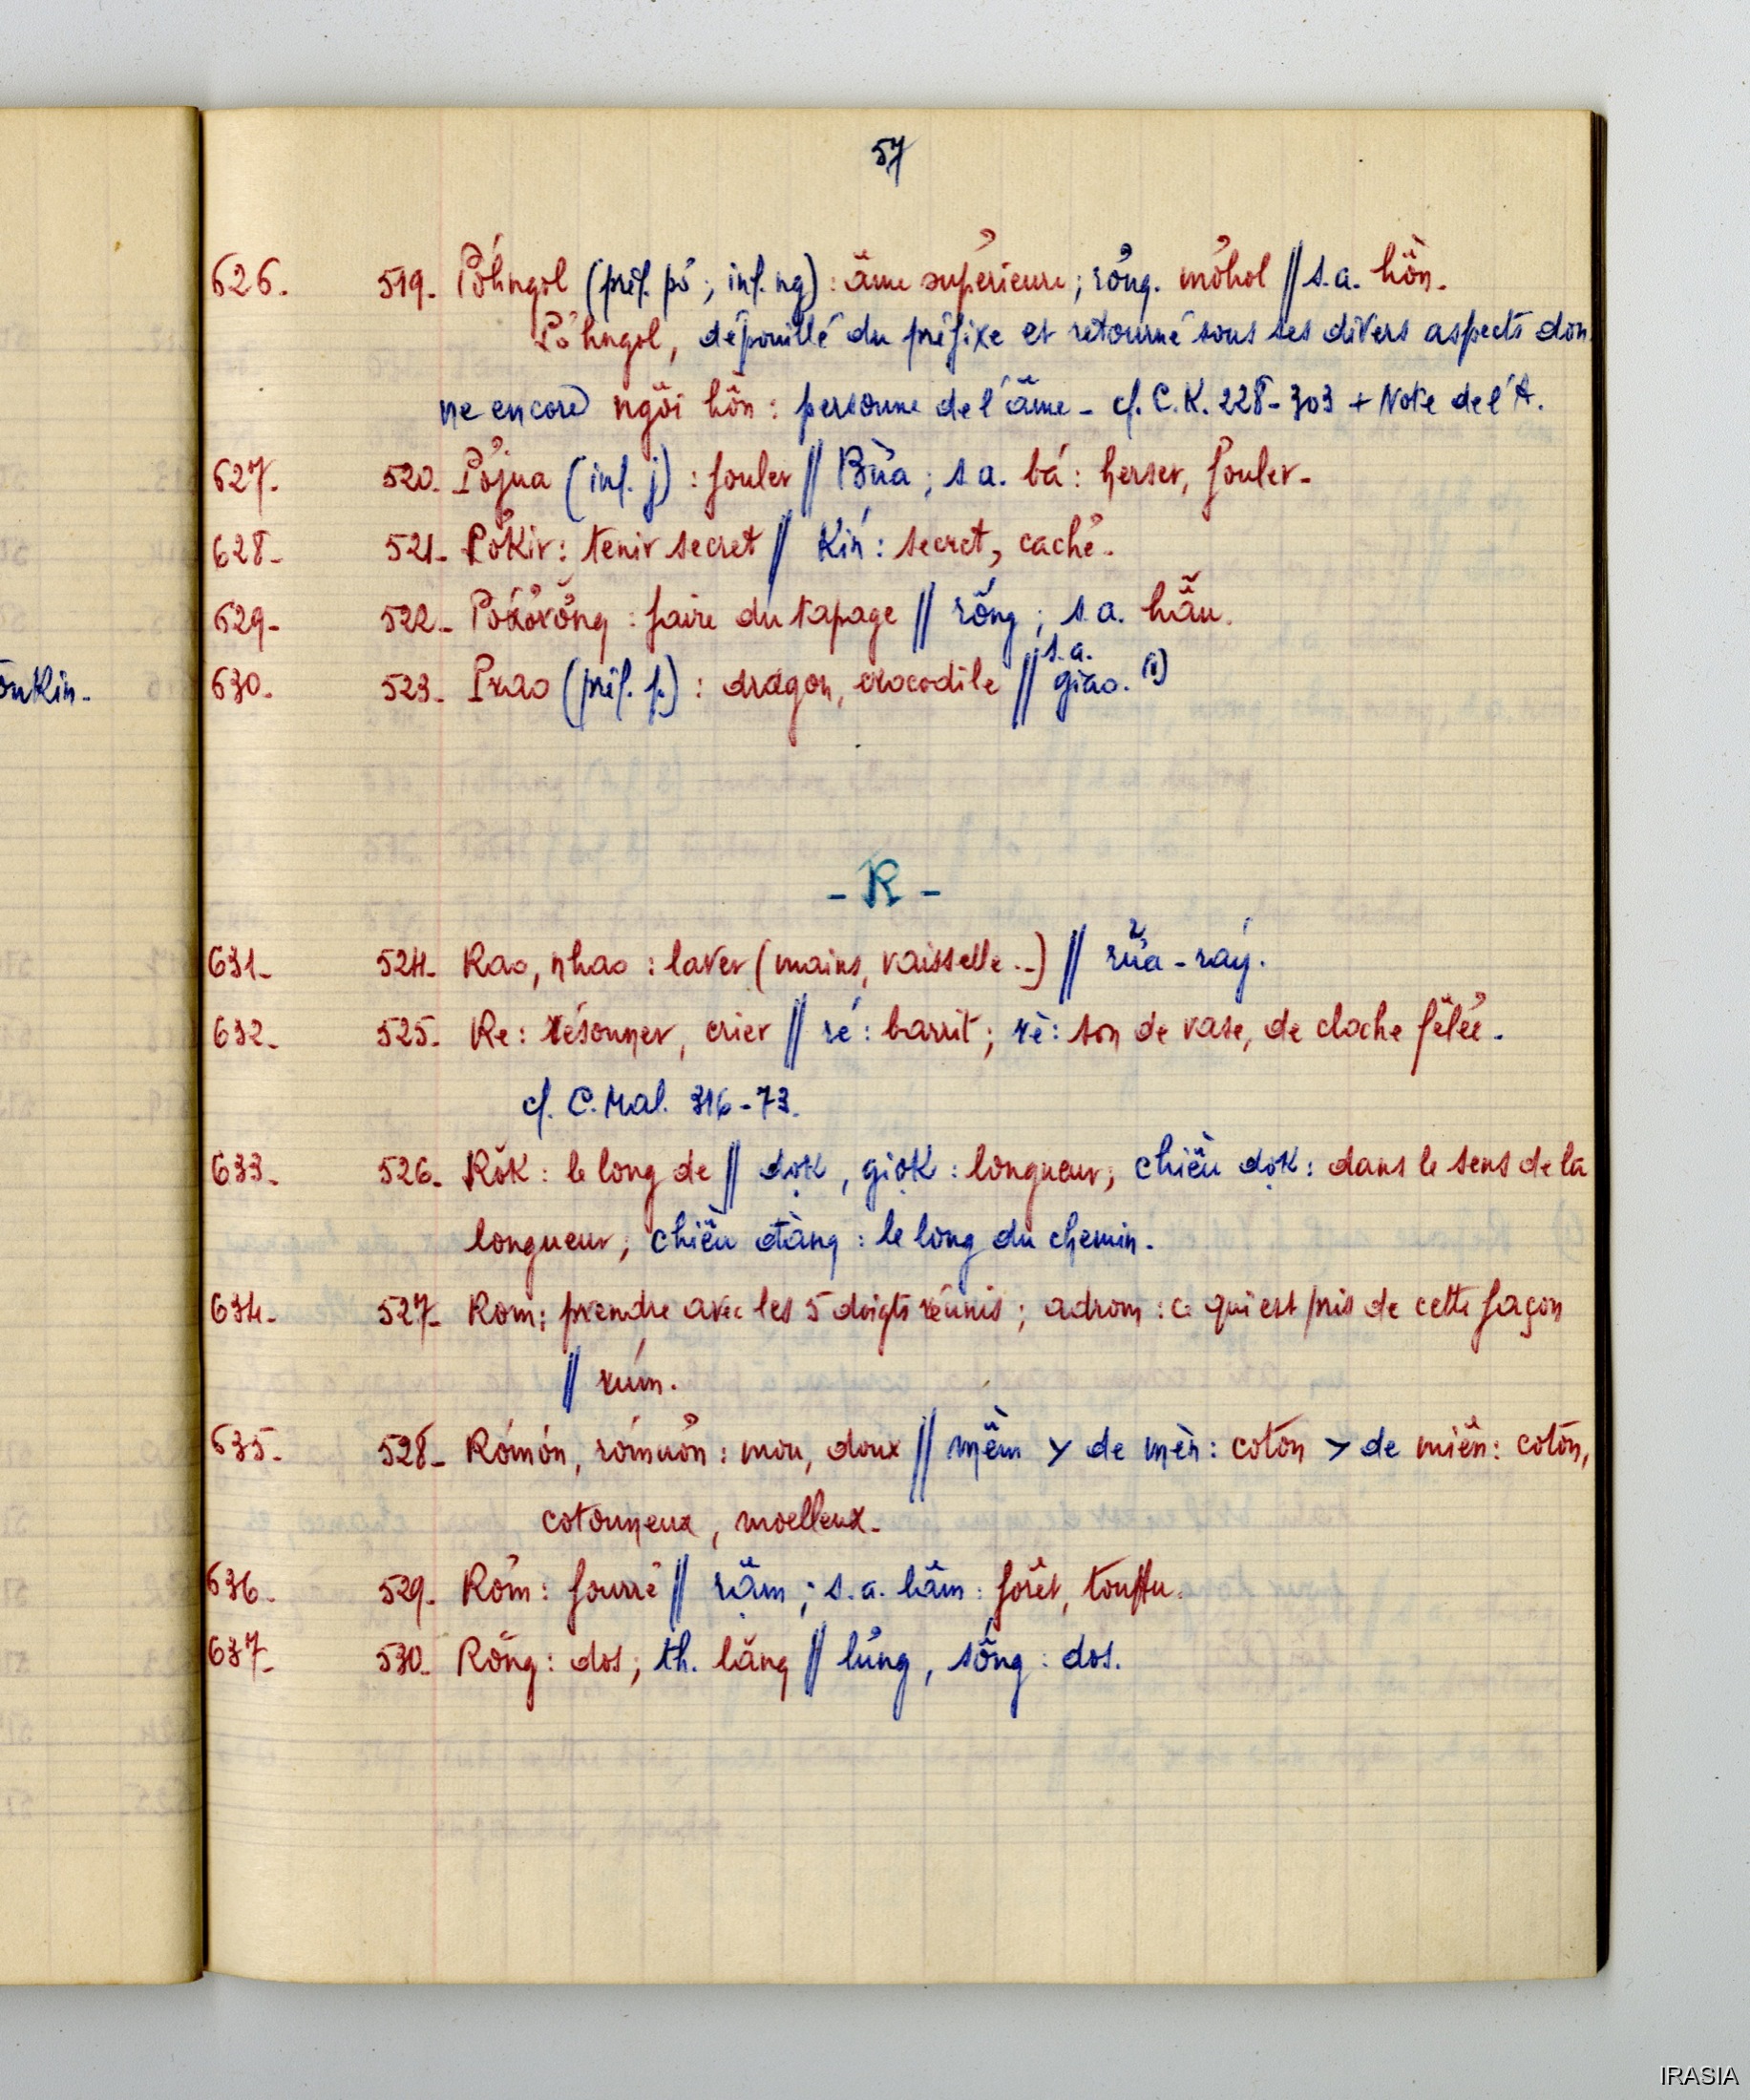 57
626. 519. Pơhngol (préf. pơ ; inf. ng) : âme supérieure ; rơng. mơhol // s.a. hồn.
Pơhngol, dépouillé du préfixe et retourné sous ses divers aspects don
ne encore ngôi hồn : personne de l'âme - cf. C.K. 228-303 + Note de l'A.
627. 520. Pơjua (inf. j) : fouler // Bừa ; s.a. bá : herser, fouler.
628. 521. Pơkir : tenir secret // Kín : secret, caché.
629. 522. : faire du tapage // rống ; s.a. hẩu.
onkin.
s.a.
630. 523. Prao (préf. p.) : dragon, crocodile // giao. (1)
- R -
631. 524. Rao, nhao : laver (mains, vaisselle ..) // rửa - ráy.
632. 525. Re : résonner, crier // ré : barrit ; rè : son de vase, de cloche fêlée.
cf. C. Mal. 316-73.
633. 526. Rŏk : le long de // dọk, giọk : longueur ; chiều dọk : dans le sens de la
longueur ; chiều đàng : le long du chemin.
634. 527. Rom : prendre avec les 5 doigts réunis ; adrom : ce qui est pris de cette façon
// rúm.
635. 528. Rómón, rómuơn : mou, doux // mềm > de mèn : coton > de miên : coton,
cotonneux, moelleux.
636. 529. Rơm : fourré // rậm ; s.a. lâm : forêt, touffu.
637. 530. Rŏng : dos ; th. lăng // lưng, sống : dos.
IRASIA